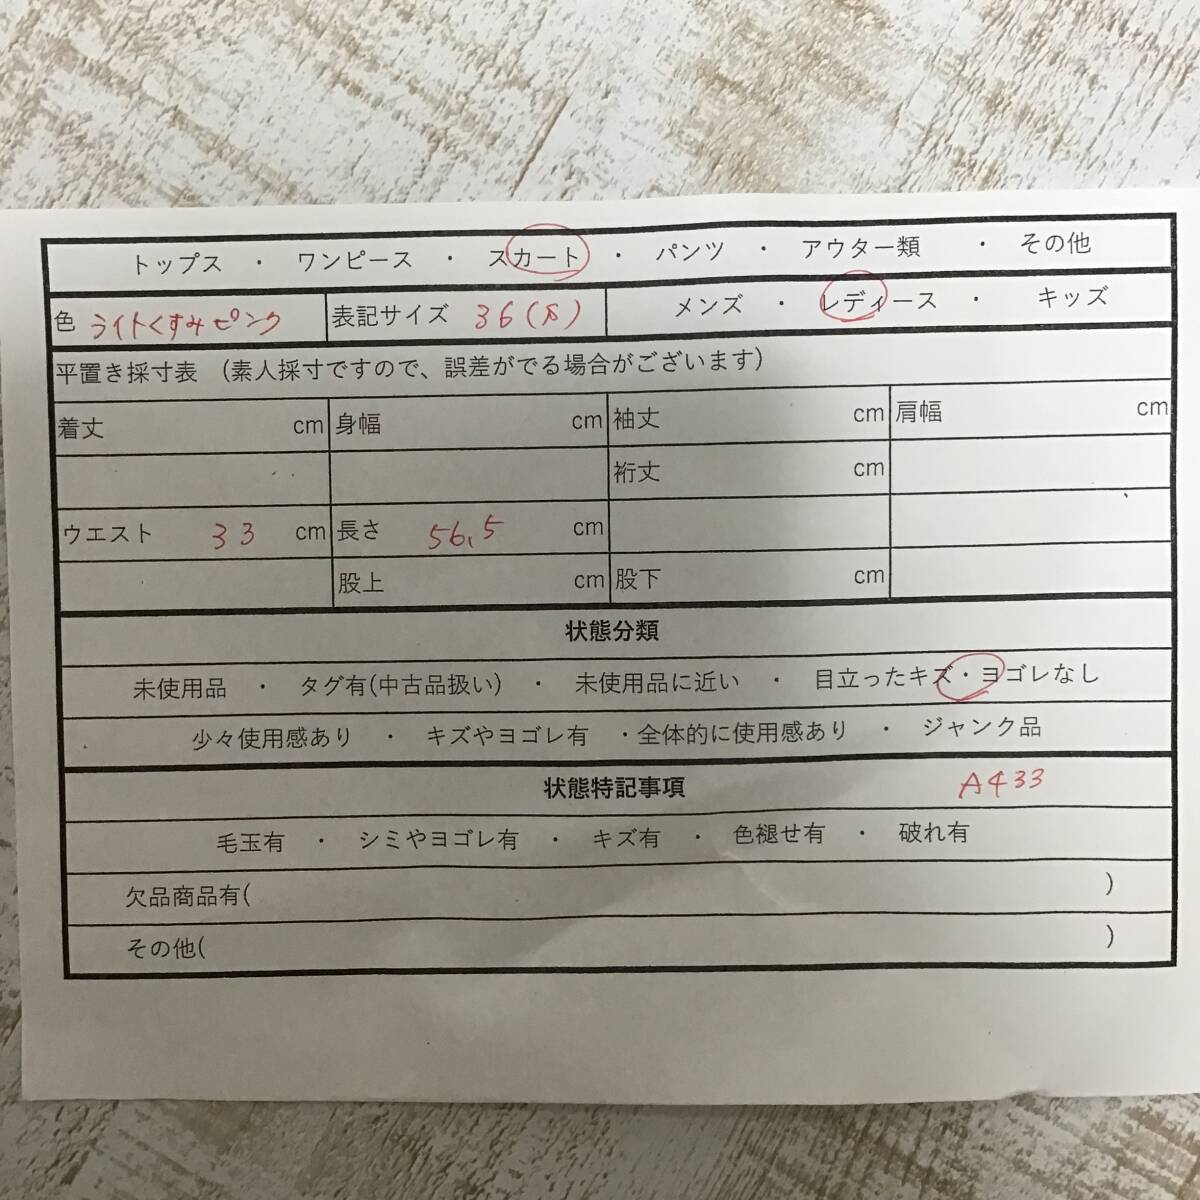 トップス ・ ワンピース ・ スカート ・ パンツ ・ アウター類 ・ その他
色 ライトくすみピンク 表記サイズ 36(S) メンズ ・ レディース ・ キッズ
平置き採寸表 (素人採寸ですので、誤差がでる場合がございます)
着丈 cm 身幅 cm 袖丈 cm 肩幅 cm
裄丈 cm
ウエスト 33 cm 長さ 56.5 cm
股上 cm 股下 cm
状態分類
未使用品 ・ タグ有(中古品扱い) ・ 未使用品に近い ・ 目立ったキズ・ヨゴレなし
少々使用感あり ・ キズやヨゴレ有 ・全体的に使用感あり ・ ジャンク品
状態特記事項 A433
毛玉有 ・ シミやヨゴレ有 ・ キズ有 ・ 色褪せ有 ・ 破れ有
欠品商品有( )
その他( )